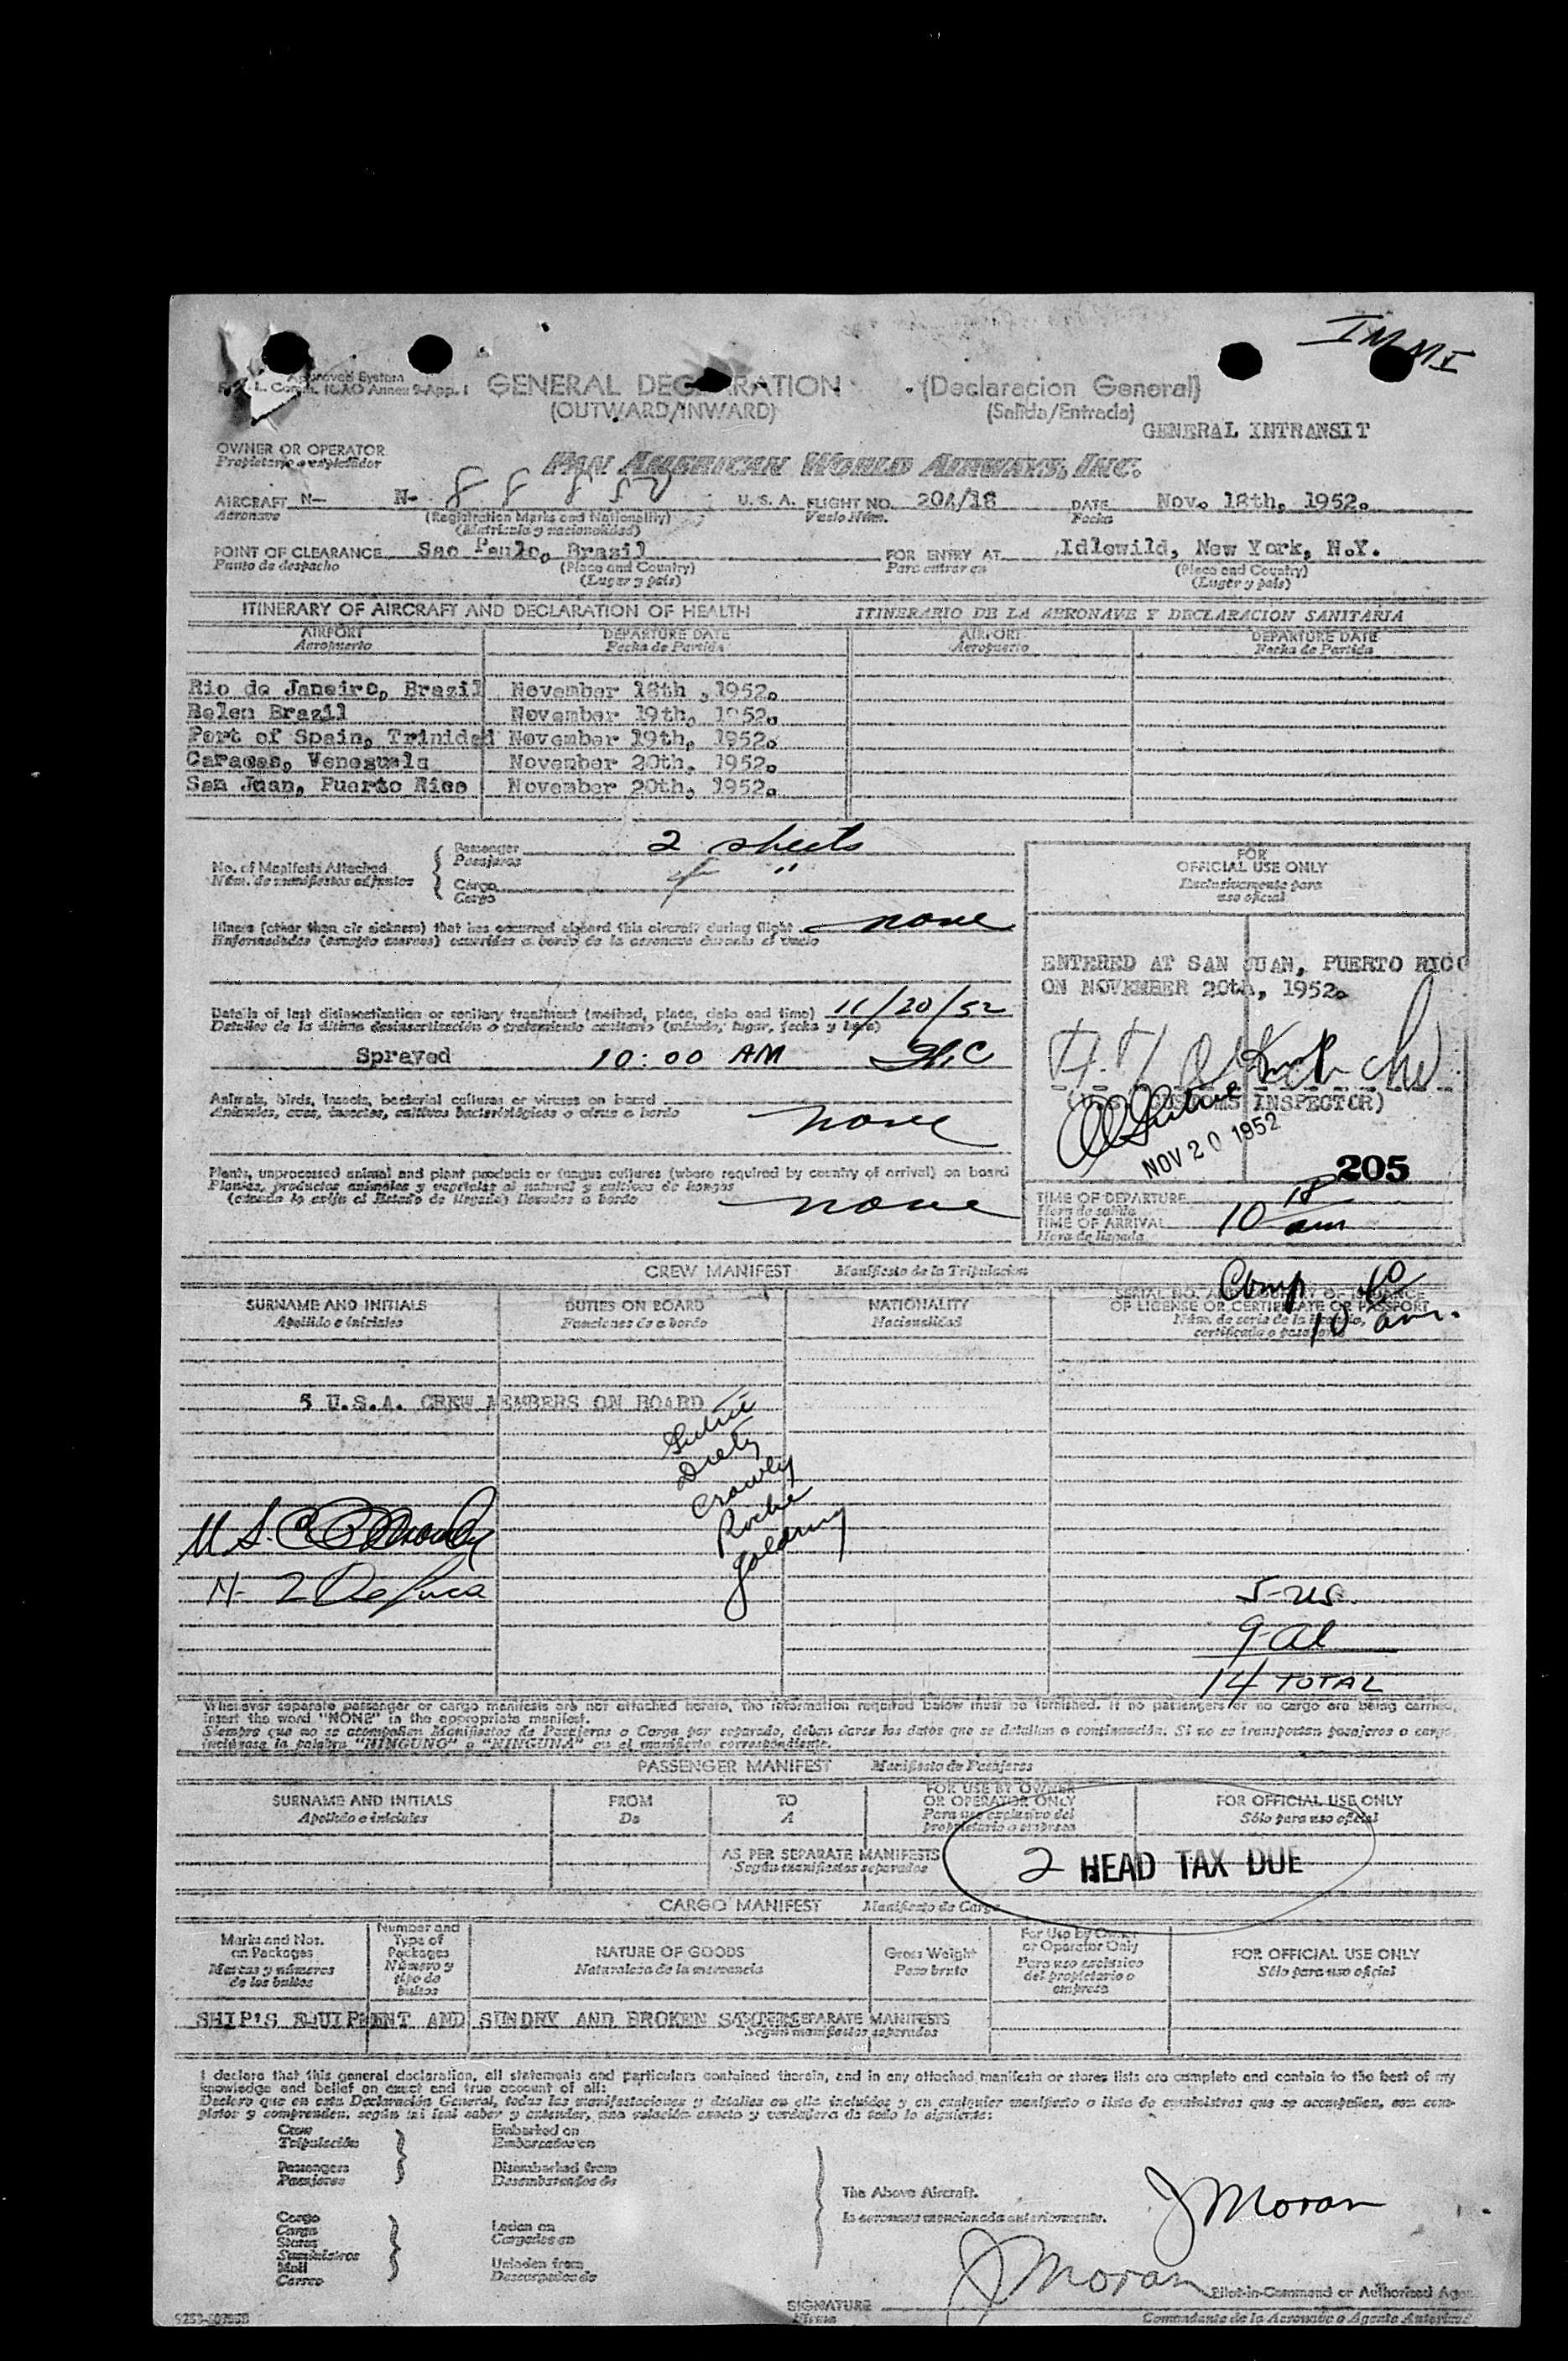 IMMI
Approved System
ICAO Annex 9-App. I
GENERAL DECLARATION (Declaracion General)
(OUTWARD/INWARD) (Salida/Entrada)
GENERAL INTRANSIT
OWNER OR OPERATOR
Propietario o explotador
PAN AMERICAN WORLD AIRWAYS, INC.
AIRCRAFT N- N- U. S. A. FLIGHT NO. 204/18 DATE Nov. 18th, 1952.
Aeronave (Registration Marks and Nationality) Vuelo Núm. Fecha
(Matrícula y nacionalidad)
POINT OF CLEARANCE Sao Paulo, Brazil FOR ENTRY AT Idlewild, New York, N.Y.
Punto de despacho (Place and Country) Para entrar en (Place and Country)
(Lugar y país) (Lugar y país)
ITINERARY OF AIRCRAFT AND DECLARATION OF HEALTH ITINERARIO DE LA AERONAVE Y DECLARACION SANITARIA
AIRPORT DEPARTURE DATE AIRPORT DEPARTURE DATE
Aeropuerto Fecha de Partida Aeropuerto Fecha de Partida
Rio de Janeiro, Brazil November 18th ,1952.
Belen Brazil November 19th, 1952.
Port of Spain, Trinidad November 19th, 1952.
Caracas, Venezuela November 20th, 1952.
San Juan, Puerto Rico November 20th, 1952.
No. of Manifests Attached Passenger 2 sheets
Núm. de manifiestos adjuntos Pasajeros
Cargo 4 "
Cargo
FOR
OFFICIAL USE ONLY
Exclusivamente para
uso oficial
Illness (other than air sickness) that has occurred aboard this aircraft during flight none
Enfermedades (excepto mareos) ocurridas a bordo de la aeronave durante el vuelo
ENTERED AT SAN JUAN, PUERTO RICO
ON NOVEMBER 20th, 1952.
Details of last disinsectization or sanitary treatment (method, place, date and time) 11/20/52
Detalles de la última desinsectización o tratamiento sanitario (método, lugar, fecha y hora)
Sprayed 10:00 AM
Animals, birds, insects, bacterial cultures or viruses on board none
Animales, aves, insectos, cultivos bacteriológicos o virus a bordo
(U.S. CUSTOMS INSPECTOR)
NOV 20 1952
205
Plants, unprocessed animal and plant products or fungus cultures (where required by country of arrival) on board
Plantas, productos animales y vegetales al natural y cultivos de hongos
(cuando lo exija el Estado de llegada) llevados a bordo none
TIME OF DEPARTURE
Hora de salida
TIME OF ARRIVAL 10 18 am
Hora de llegada
CREW MANIFEST Manifiesto de la Tripulacion
Comp 10 40 am.
SURNAME AND INITIALS DUTIES ON BOARD NATIONALITY SERIAL NO. AND COUNTRY OF ISSUANCE
Apellido e iniciales Funciones de a bordo Nacionalidad OF LICENSE OR CERTIFICATE OR PASSPORT
Núm. de serie de la licencia,
certificado o pasaporte
5 U.S.A. CREW MEMBERS ON BOARD
Crowley
Roche
Goldring
5-US
9-al
14 TOTAL
Whenever separate passenger or cargo manifests are not attached hereto, the information required below must be furnished. If no passengers or no cargo are being carried,
insert the word "NONE" in the appropriate manifest.
Siempre que no se acompañen Manifiestos de Pasajeros o Carga por separado, deben darse los datos que se detallan a continuación. Si no se transportan pasajeros o carga,
inclúyase la palabra "NINGUNO" o "NINGUNA" en el manifiesto correspondiente.
PASSENGER MANIFEST Manifiesto de Pasajeros
SURNAME AND INITIALS FROM TO FOR USE BY OWNER OR OPERATOR ONLY FOR OFFICIAL USE ONLY
Apellido e iniciales De A Para uso exclusivo del propietario o empresa Sólo para uso oficial
AS PER SEPARATE MANIFESTS
Según manifiestos separados
2 HEAD TAX DUE
CARGO MANIFEST Manifiesto de Carga
Marks and Nos. on Packages Number and Type of Packages NATURE OF GOODS Gross Weight For Use By Owner or Operator Only FOR OFFICIAL USE ONLY
Marcas y números de los bultos Número y tipo de bultos Naturaleza de la mercancía Peso bruto Para uso exclusivo del propietario o empresa Sólo para uso oficial
SHIP'S EQUIPMENT AND SUNDRY AND BROKEN STORES
SEPARATE MANIFESTS
Según manifiestos separados
I declare that this general declaration, all statements and particulars contained therein, and in any attached manifests or stores lists are complete and contain to the best of my
knowledge and belief an exact and true account of all:
Declaro que en esta Declaración General, todas las manifestaciones y detalles en ella incluídos y en cualquier manifiesto o lista de suministros que se acompañen, son com-
pletos y comprenden, según mi leal saber y entender, una relación exacta y verdadera de todo lo siguiente:
Crew Embarked on
Tripulación Embarcados en
Passengers Disembarked from
Pasajeros Desembarcados de
The Above Aircraft.
la aeronave mencionada anteriormente.
J Moran
Cargo
Carga Laden on
Stores Cargados en
Suministros
Mail Unladen from
Correo Descargados de
J Moran
SIGNATURE Pilot-in-Command or Authorized Agent
Firma Comandante de la Aeronave o Agente Autorizado